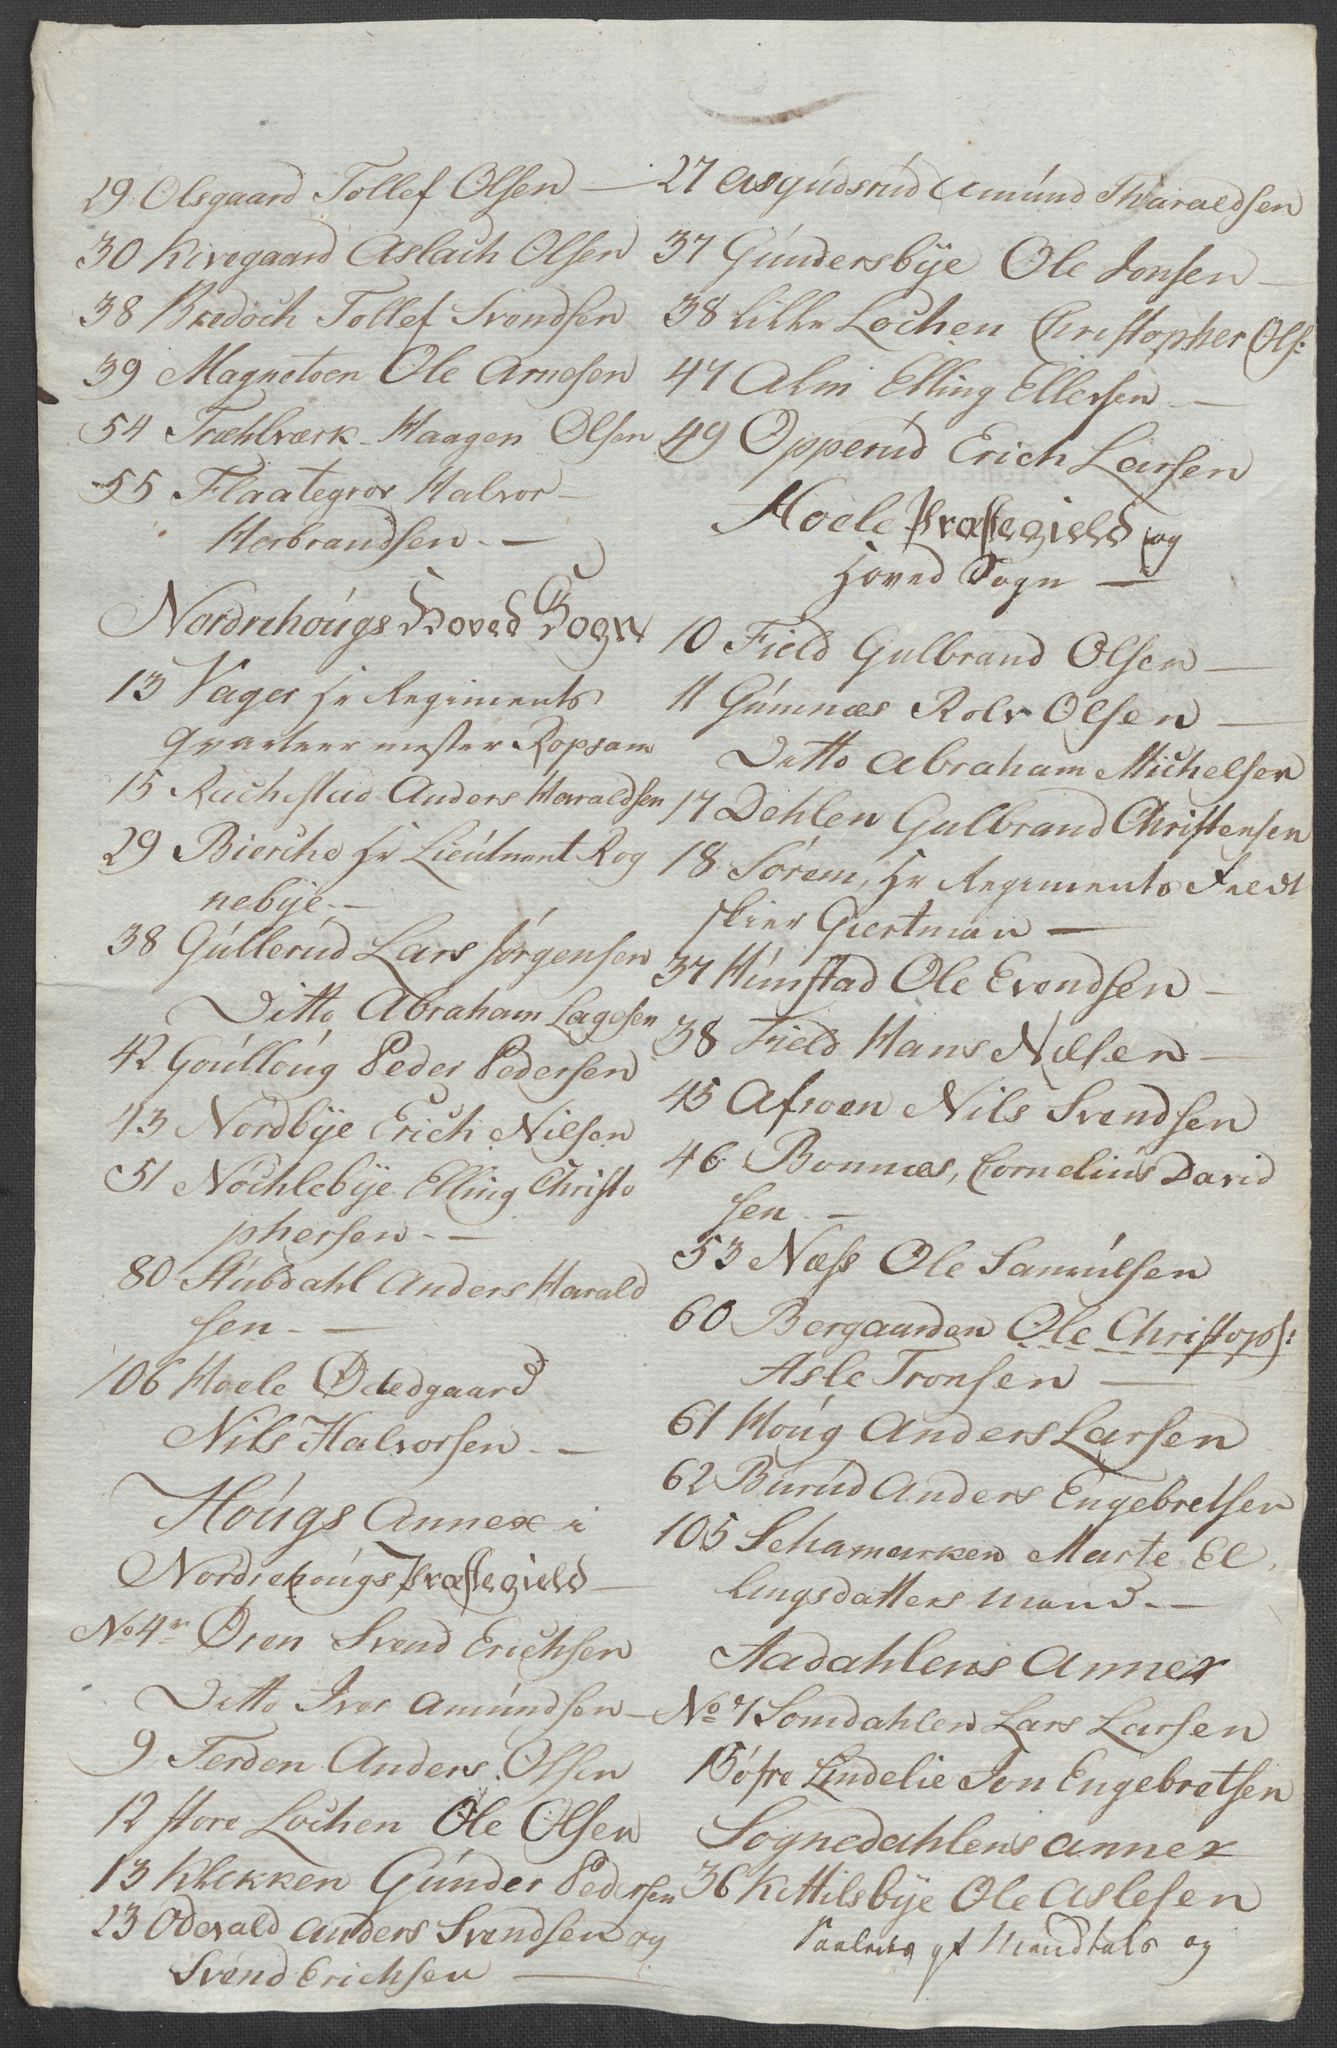 29 Olsgaard Tollef Olsen —
30 Kirvegaard Aslach Olsen
38 Bredoch Tollef Svendsen
39 Magnetoen Ole Arnesen
54 Træhlværk Haagen Olsen
55 Flaategrov Halvor
Herbrandsen. —
Nordrehoúgs Hoved Sogn
13 Vager Hr Regiments
qvarteermester Ropsam
15 Rachestad Anders Haraldsen
29 Bierche Hr Lieútnant Rog
nebÿe. —
38 Gúllerúd Lars Jörgensen
Ditto Abraham Lagesen
42 Goúlloúg Peder Pedersen
43 Nordbÿe Erich Nilsen
51 Nöchlebÿe Elling Christo
phersen. —
80 Stúbdahl Anders Harald
sen. —
106 Hoele Ødedgaard
Nils Halvorsen. —
Hoúgs Annex i
Nordrehoúgs Præstegield —
No 4 Øren Svend Erichsen
Ditto Iver Amúndsen —
9 Ferden Anders Olsen
12 store Lochen Ole Olsen
13 Klekken Gúnder Pedersen
23 Odevald Anders Svendsen og
Svend Erichsen —
27 Asgúdsrúd Amúnd Tharaldsen
37 Gúndersbÿe Ole Jonsen —
38 lille Lochen Christopher Ols:
47 Alm Elling Ellersen —
49 Opperúd Erich Larsen
Hoele Præstegield og
Hoved Sogn —
10 Field Gulbrand Olsen —
11 Gúmnæs Rolv Olsen —
Ditto Abraham Michelsen
17 Dehlen Gulbrand Christensen
18 Sörem, Hr Regiments Feldt
skier Giertman —
37 Húnstad Ole Evendsen —
38 Field Hans Nilsen —
45 Afsoen Nils Svendsen
46 Bonnæs, Cornelius David
sen. —
53 Næss Ole Samúelsen
60 Bergaarden Ole Christophs:
Asle Tronsen —
61 Hoúg Anders Larsen
62 Búrúd Anders Engebretsen
105 Schamarken Marte El
lingsdatters mand. —
Aadahlens Annex
No 7 Somdahlen Lars Larsen
15 öfre Lindelie Jon Engebretsen
Sognedahlens annex
36 Kittilsbÿe Ole Aslesen
Mandtals og